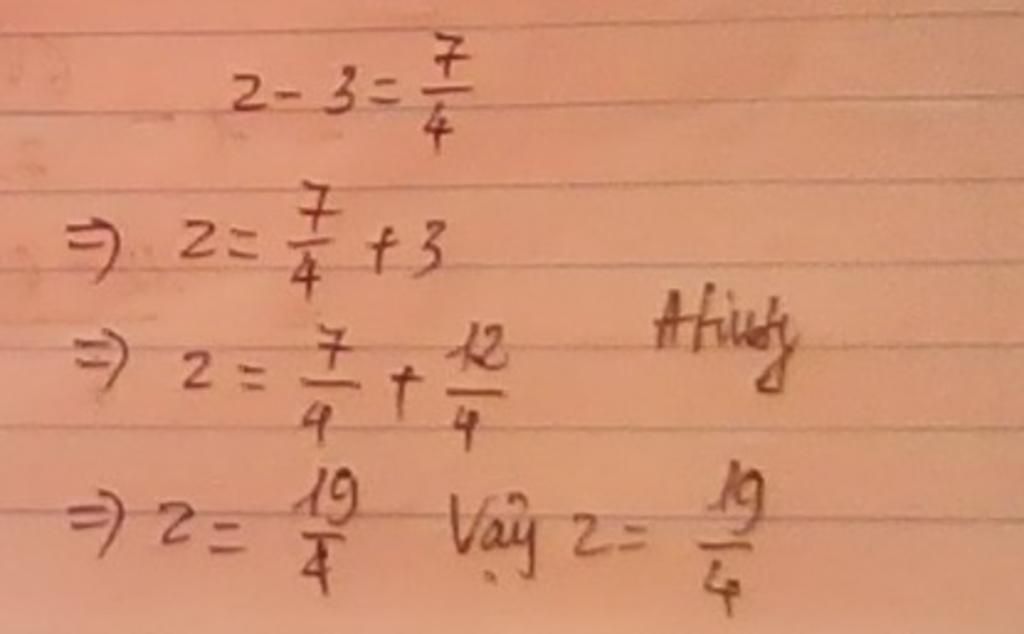 z - 3 = 7/4
⇒ z = 7/4 + 3
⇒ z = 7/4 + 12/4
⇒ z = 19/4 Vậy z = 19/4